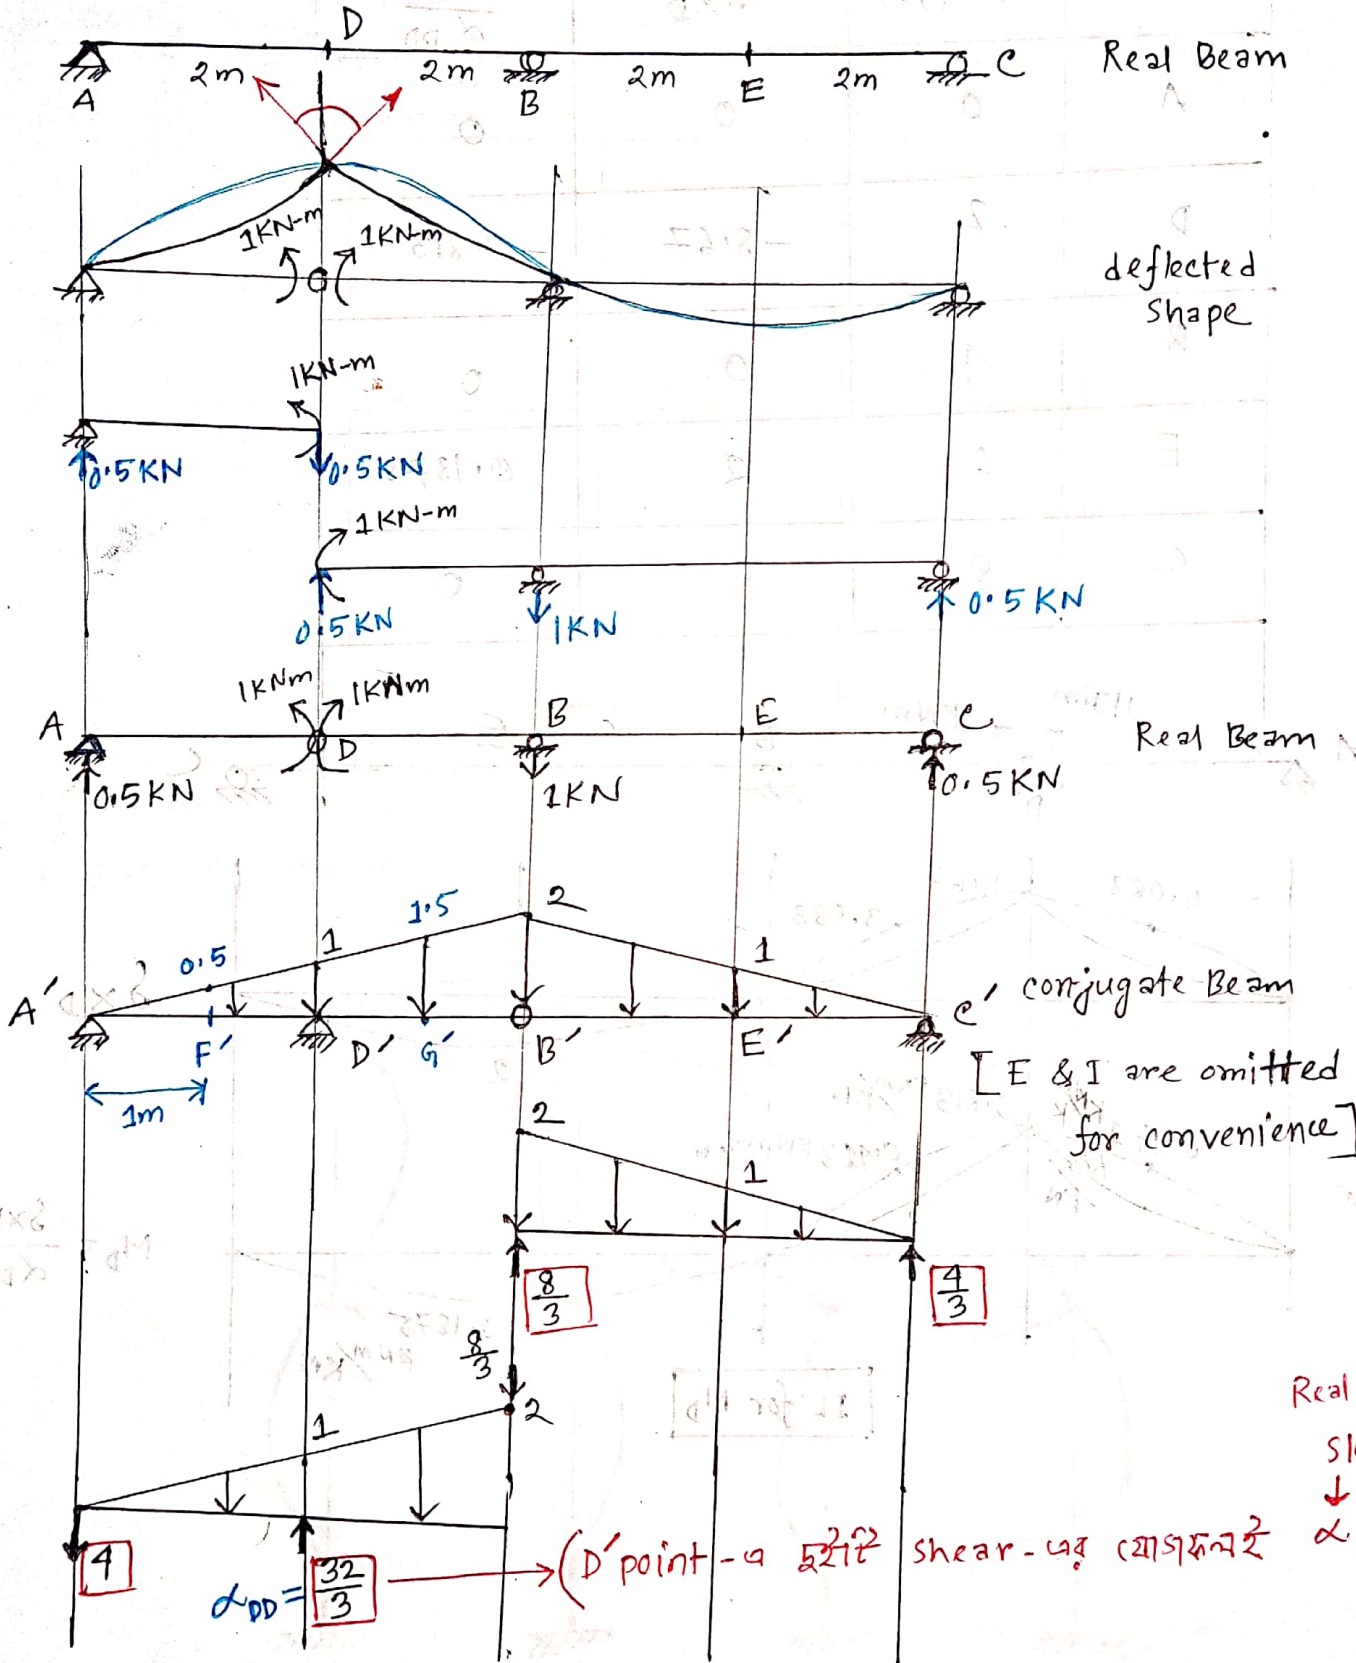 D
2m 2m 2m 2m
A B E C Real Beam
1KN-m 1KN-m
deflected
shape
1KN-m
0.5KN 0.5KN
1KN-m
0.5KN 1KN 0.5KN
1KNm 1KNm
A D B E C Real Beam
0.5KN 1KN 0.5KN
0.5 1 1.5 2 1
A' F' D' G' B' E' C' conjugate Beam
1m
[E & I are omitted
for convenience]
2 1
8/3 4/3
8/3
1 2
4
αDD = 32/3 → (D' point-এ দুইটি shear-এর যোগফলই
Real
↓
α